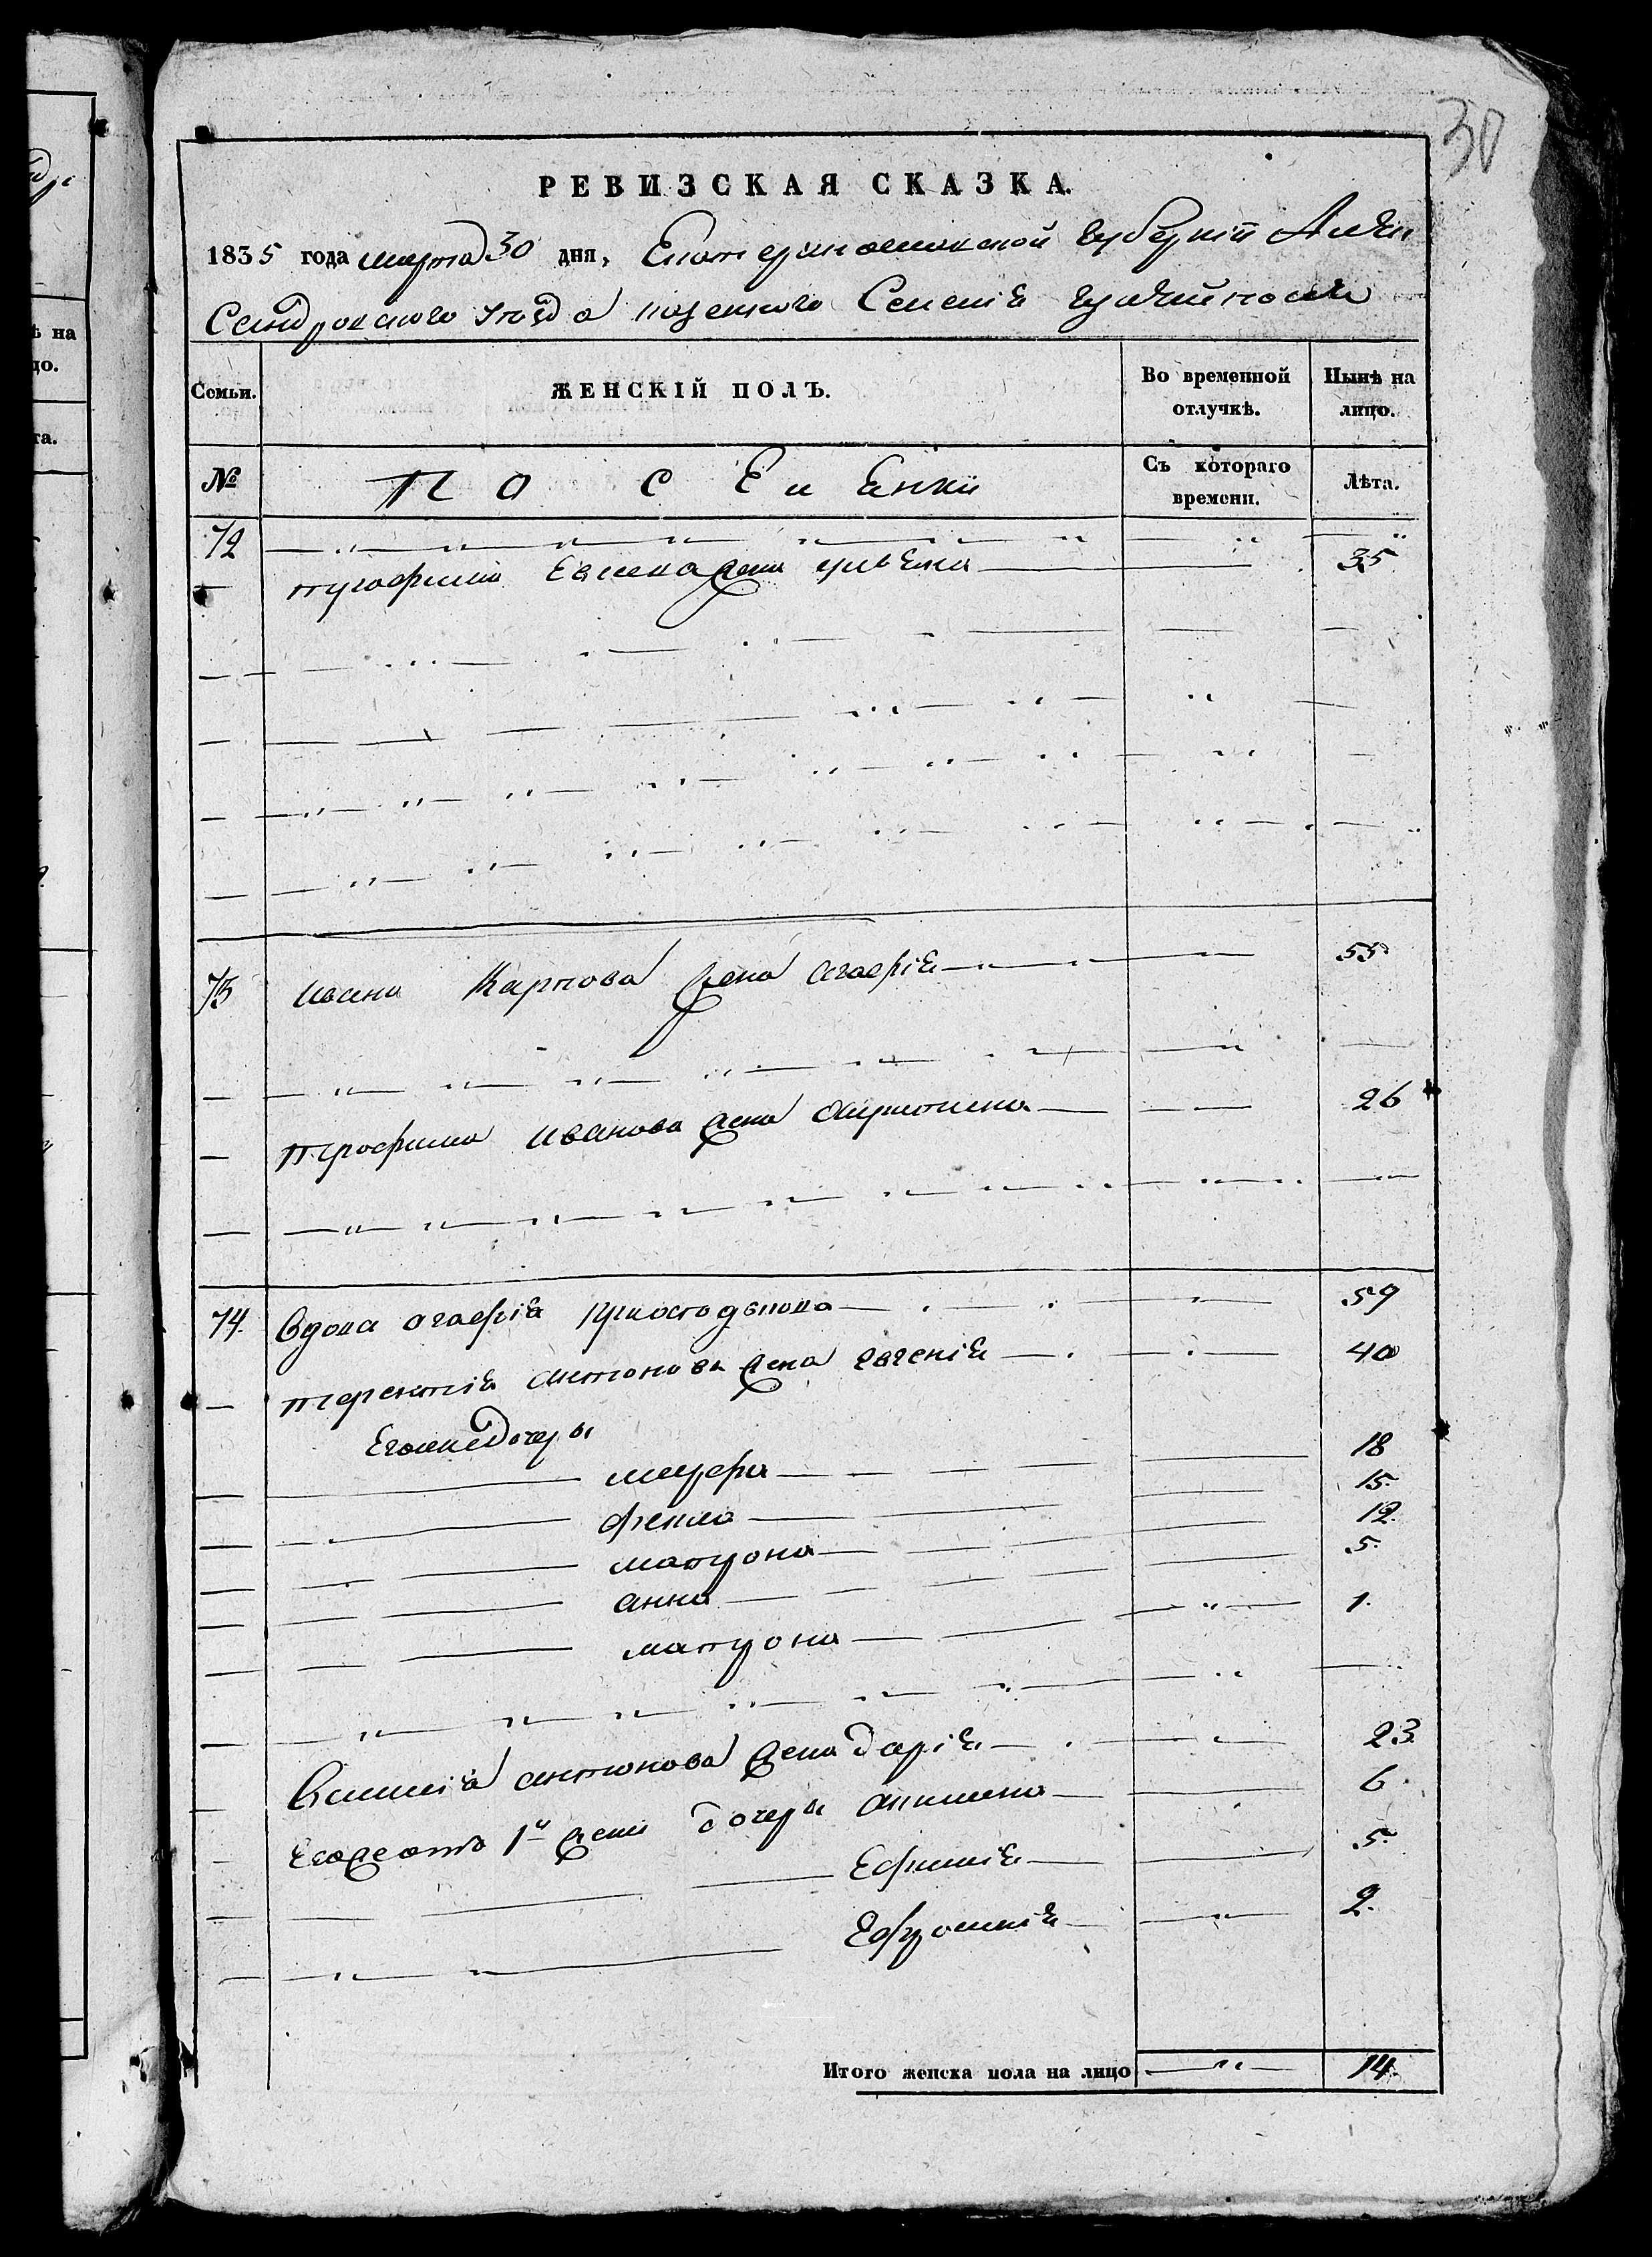 30
РЕВИЗСКАЯ СКАЗКА.
1835 года марта 30 дня, Екатеринославской губерніи Алек
Сандровского уезда казенного Селенія
Семьи.
ЖЕНСКІЙ ПОЛЪ.
Во временной отлучкѣ.
Нынѣ на лицо.
№
Съ котораго времени.
Лѣта.
72
Трофима жена 35
73 Ивана Карпова жена агафія 55
Трофима Иванова жена 26
74. Вдова агафія 59
Терентія антонова жена Евгенія 40
Егоже дочеры
18
Фекла 15.
матрона 12.
анна 5.
матрона 1.
Василія антонова жена дарія 23
Его же отъ 1й жены дочеры акилина 6.
Ефимія 5.
Ефросинія 2.
Итого женска пола на лицо 14.
ѣ на
цо.
та.